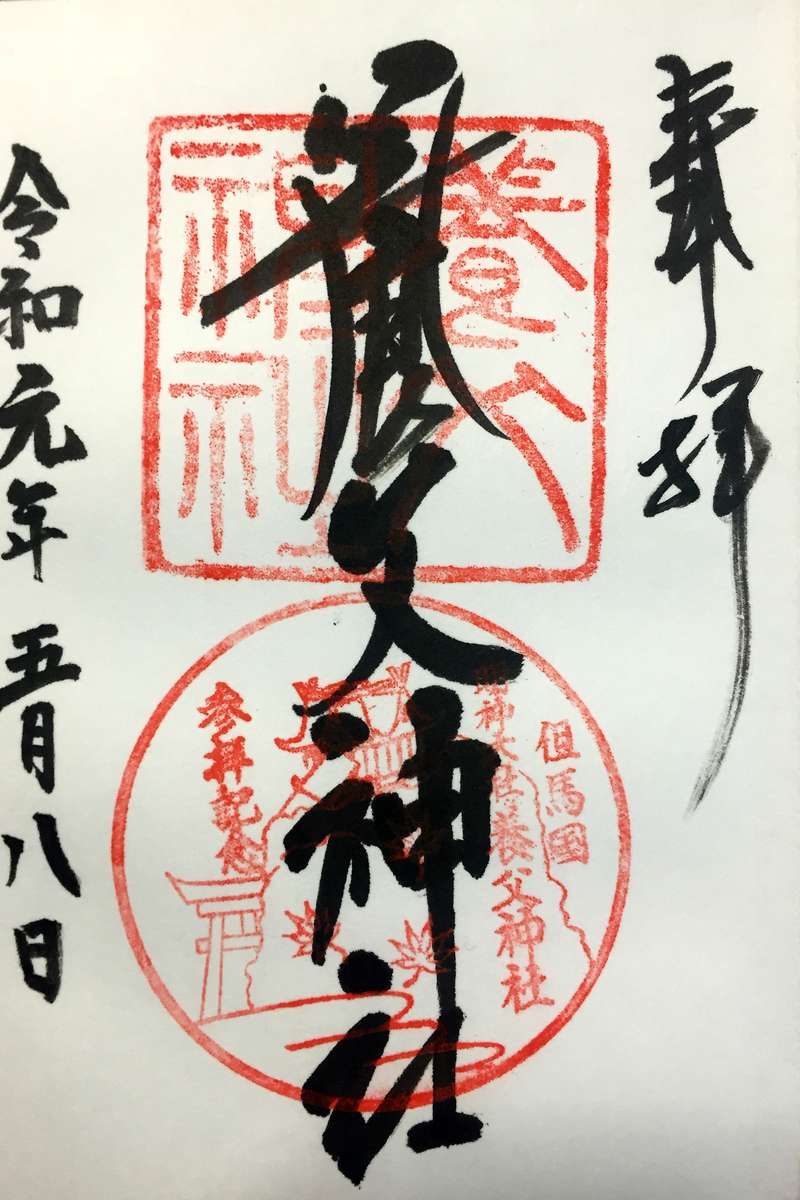 奉拝
養父神社
令和元年五月八日
養父
神社
但馬國
養父神社
参拝記念